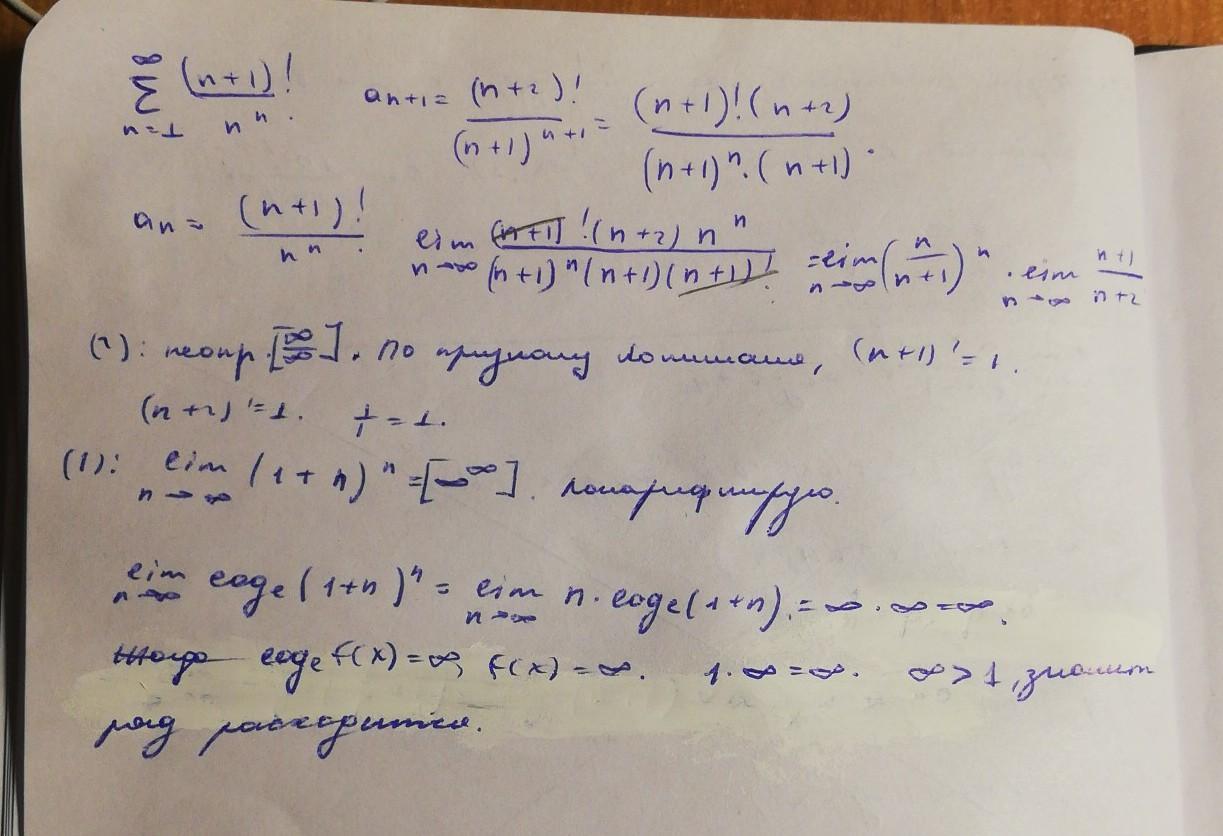 ∞ Σ n=1 (n+1)! / n^n . a_{n+1} = (n+2)! / (n+1)^{n+1} = (n+1)!(n+2) / (n+1)^n · (n+1) .
a_n = (n+1)! / n^n . lim n→∞ (n+1)!(n+2) n^n / (n+1)^n (n+1)(n+1)! = lim n→∞ (n / n+1)^n · lim n→∞ n+1 / n+2
(2): неопр. [∞/∞]. По правилу Лопиталя, (n+1)' = 1.
(n+2)' = 1. 1/1 = 1.
(1): lim n→∞ (1+n)^n = [∞^∞]. Логарифмирую.
lim n→∞ log_e (1+n)^n = lim n→∞ n · log_e (1+n) = ∞ · ∞ = ∞.
log_e f(x) = ∞, f(x) = ∞. 1 · ∞ = ∞. ∞ > 1, значит
ряд расходится.